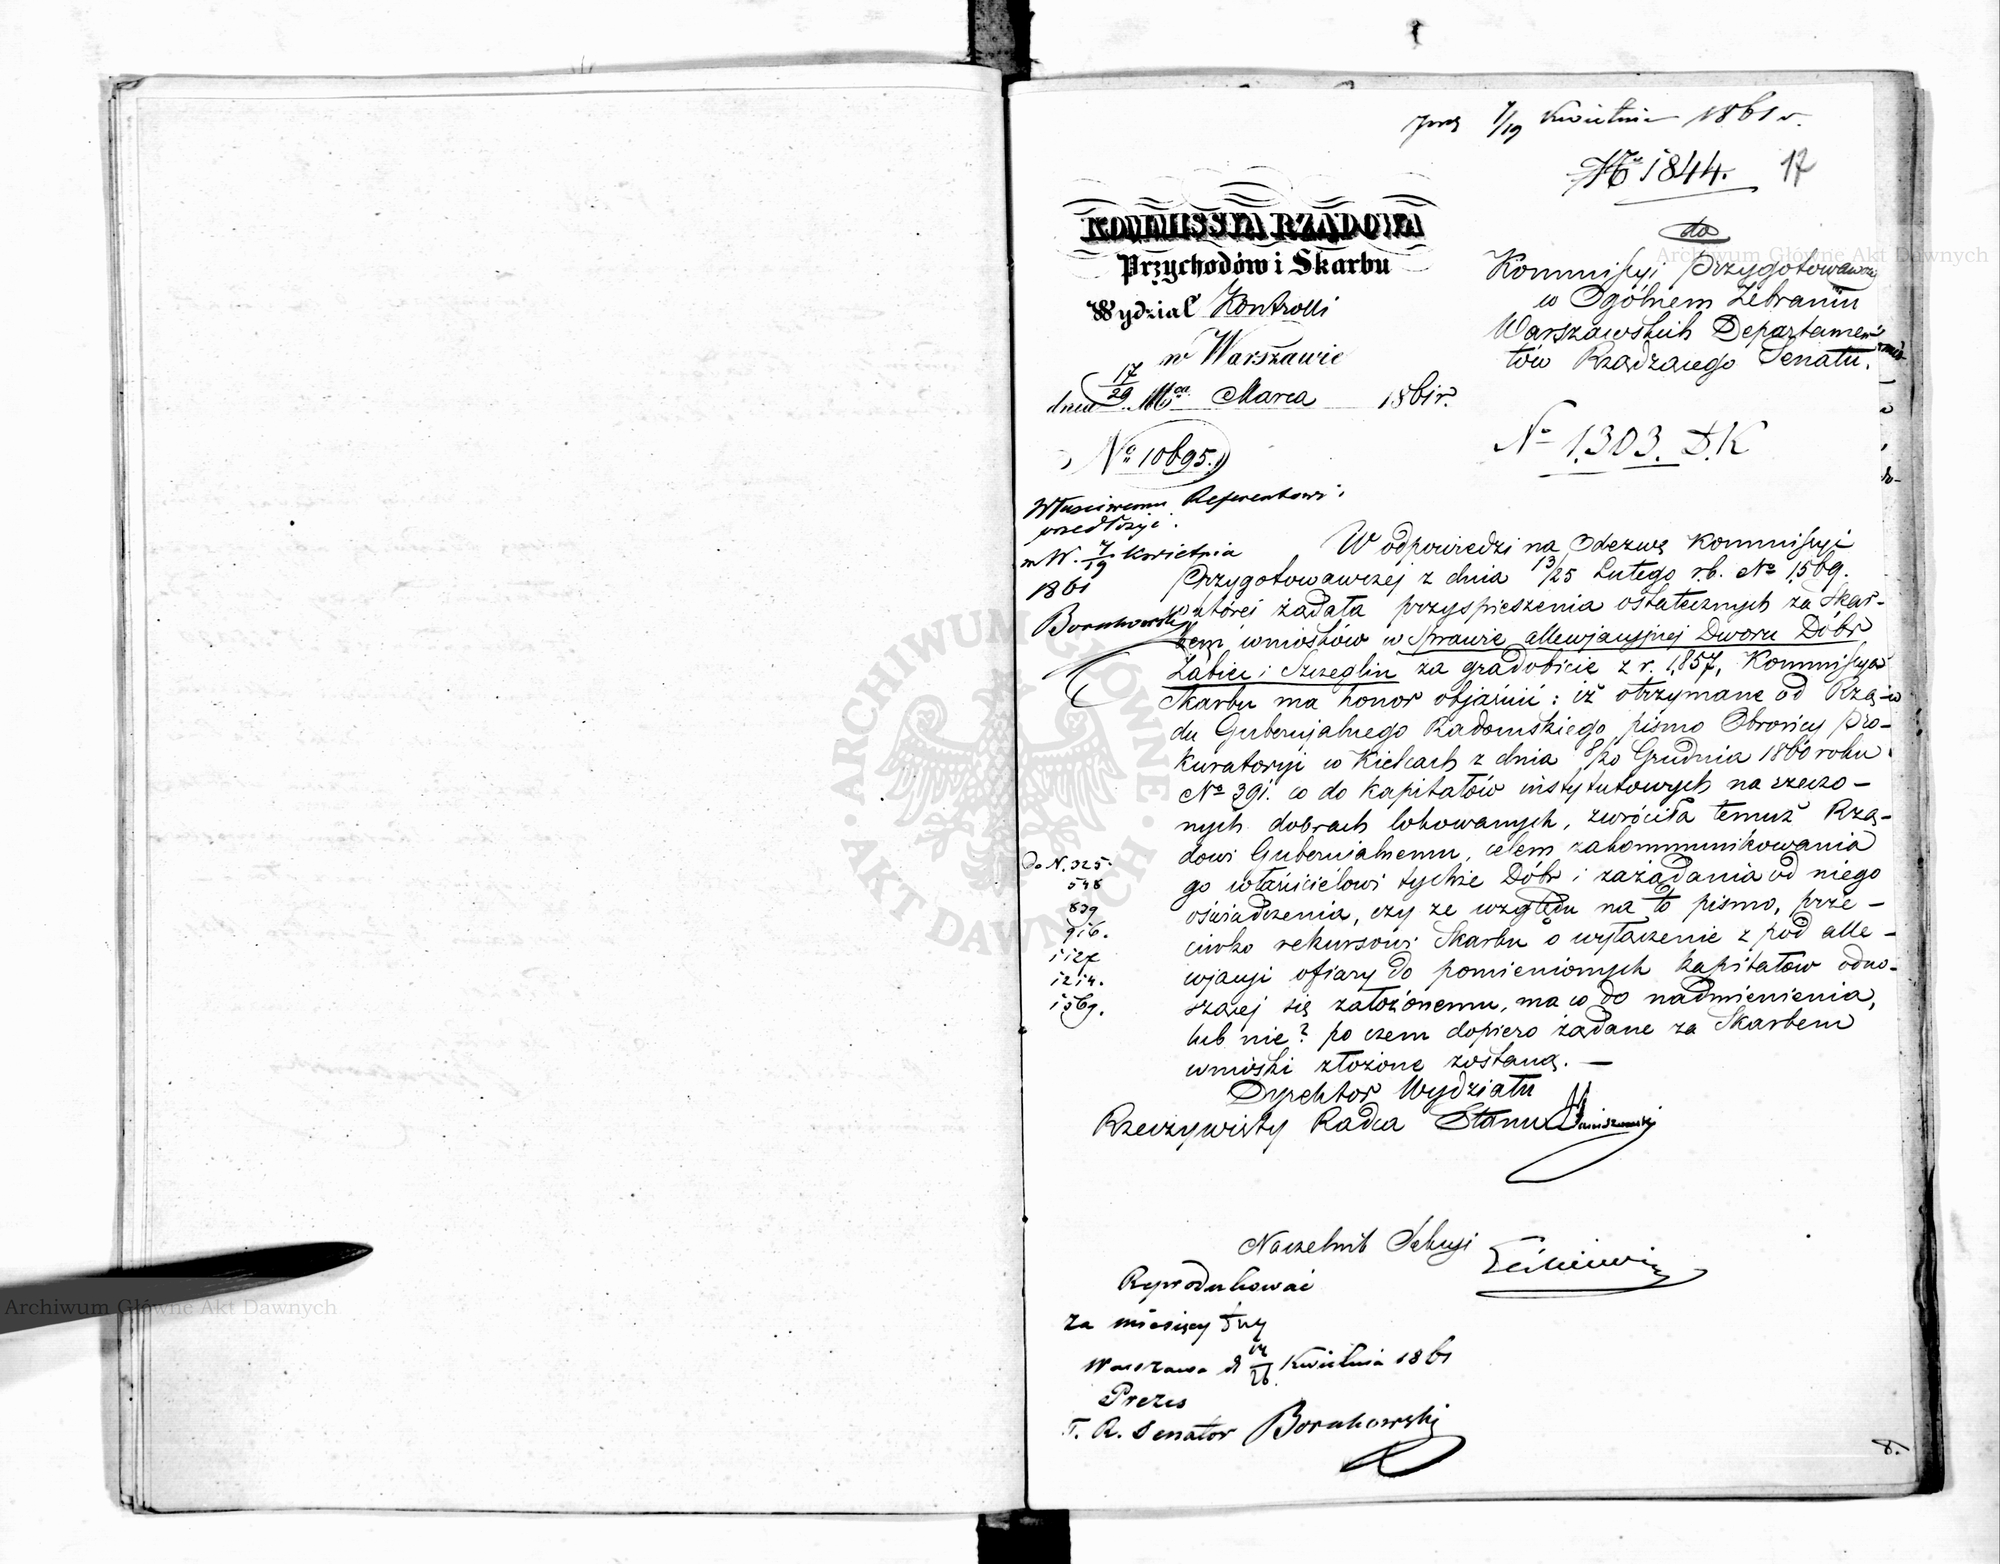 7/19 Kwietnia 1861 r.
No 1844. 17
KOMMISSYA RZĄDOWA
Przychodów i Skarbu
Wydział Kontrolli
w Warszawie
dnia 17/29 Mca Marca 1861 r.
No 10695.
do
Kommissyi Przygotowawczej
w Ogólnem Zebraniu
Warszawskich Departamen-
tów Rządzącego Senatu.
No 1303. D.K
Właściwemu Referentowi
przedłożyć.
w W. 7/19 Kwietnia
1861
Boruhowski
W odpowiedzi na Odezwę Kommissyi
Przygotowawczej z dnia 13/25 Lutego r.b. No 1569.
której żądała przyspieszenia ostatecznych za Skar-
bem wniosków w sprawie allewjacyjnej Dworu Dóbr
Żabiec i Szczeglin za gradobicie z r. 1857, Kommissya
Skarbu ma honor objaśnić: iż otrzymane od Rzą-
du Gubernjalnego Radomskiego pismo Obrońcy Pro-
kuratoryi w Kielcach z dnia 8/20 Grudnia 1860 roku
No 391. co do kapitałów instytutowych na rzeczo-
nych dobrach lokowanych, zwróciła temuż Rzą-
dowi Gubernjalnemu, celem zakommunikowania
go właścicielowi tychże Dóbr i zażądania od niego
oświadczenia, czy ze względu na to pismo, prze-
ciwko rekursowi Skarbu o wyłączenie z pod alle-
wjacyi ofiary do pomienionych kapitałów odno-
szącej się założonemu, ma co do nadmienienia,
lub nie? po czem dopiero żądane za Skarbem
wnioski złożone zostaną. —
Do N. 325.
548
839
916.
1127
1214.
1569.
Dyrektor Wydziału
Rzeczywisty Radca Stanu
Naczelnik Sekcyi
Reprodukować
za miesięcy trzy
Warszawa d 14/26 Kwietnia 1861
Prezes
T. R. Senator Boruhowski
8.
Archiwum Główne Akt Dawnych
Archiwum Główne Akt Dawnych
ARCHIWUM GŁÓWNE · AKT DAWNYCH ·